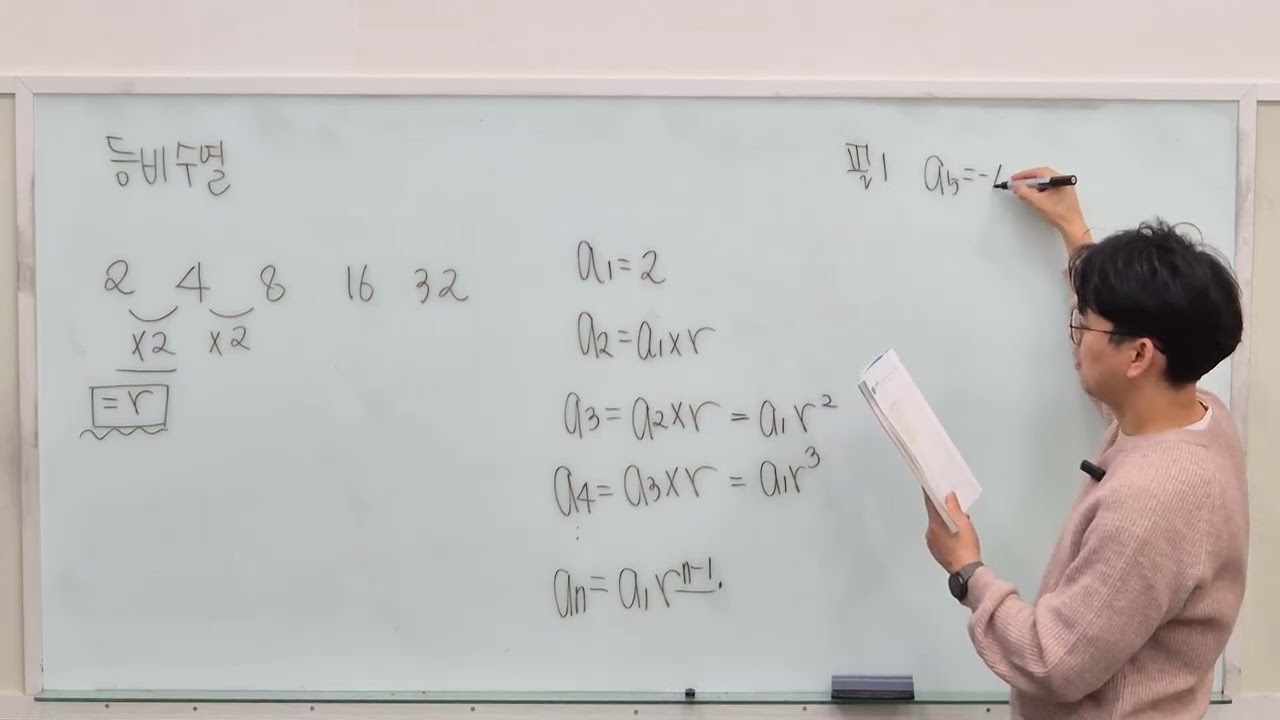 등비수열
2 4 8 16 32
×2 ×2
=r
a₁=2
a₂=a₁×r
a₃=a₂×r=a₁r²
a₄=a₃×r=a₁r³
⋮
aₙ=a₁rⁿ⁻¹.
필1 a₅=-